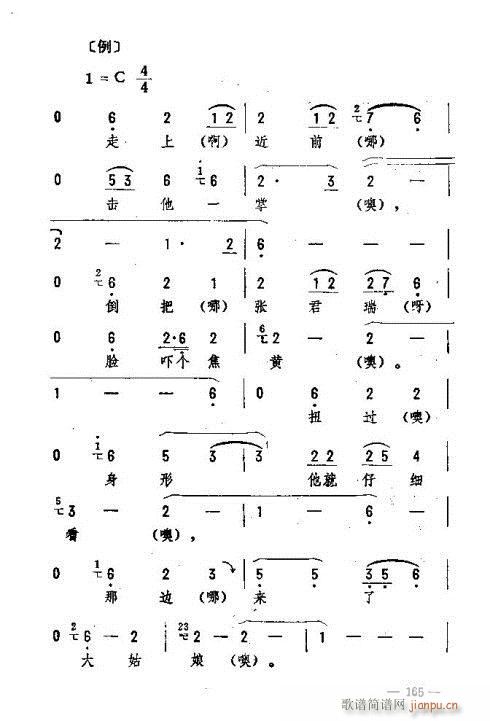 〔例〕
1=C 4/4
0 6 2 12 | 2 - 2 7 6 |
走上(啊) 近前(哪)
0 53 1 6 - | 2· 3 2 - |
击他一 掌(噢),
2 - 1· 2 | 6 - - - |
0 2 6 2 1 | 2 12 27 6 |
倒把(哪) 张君瑞(呀)
0 6 2·6 2 | 6 2 - 2 - |
脸吓个焦 黄(噢)。
1 - - 6 | 0 6 2 2 |
扭过(噢)
0 1 6 5 3 | 3 22 25 4 |
身形 他就仔细
5 3 - 2 - | 1 - 6 - |
看(噢),
0 1 6 2 3 | 5 5 35 6 |
那边(哪) 来了
0 2 6· - 2 | 23 2 - 2 - | 1 - - - |
大姑娘(噢)。
— 165 —
歌谱简谱网
jianpu.cn